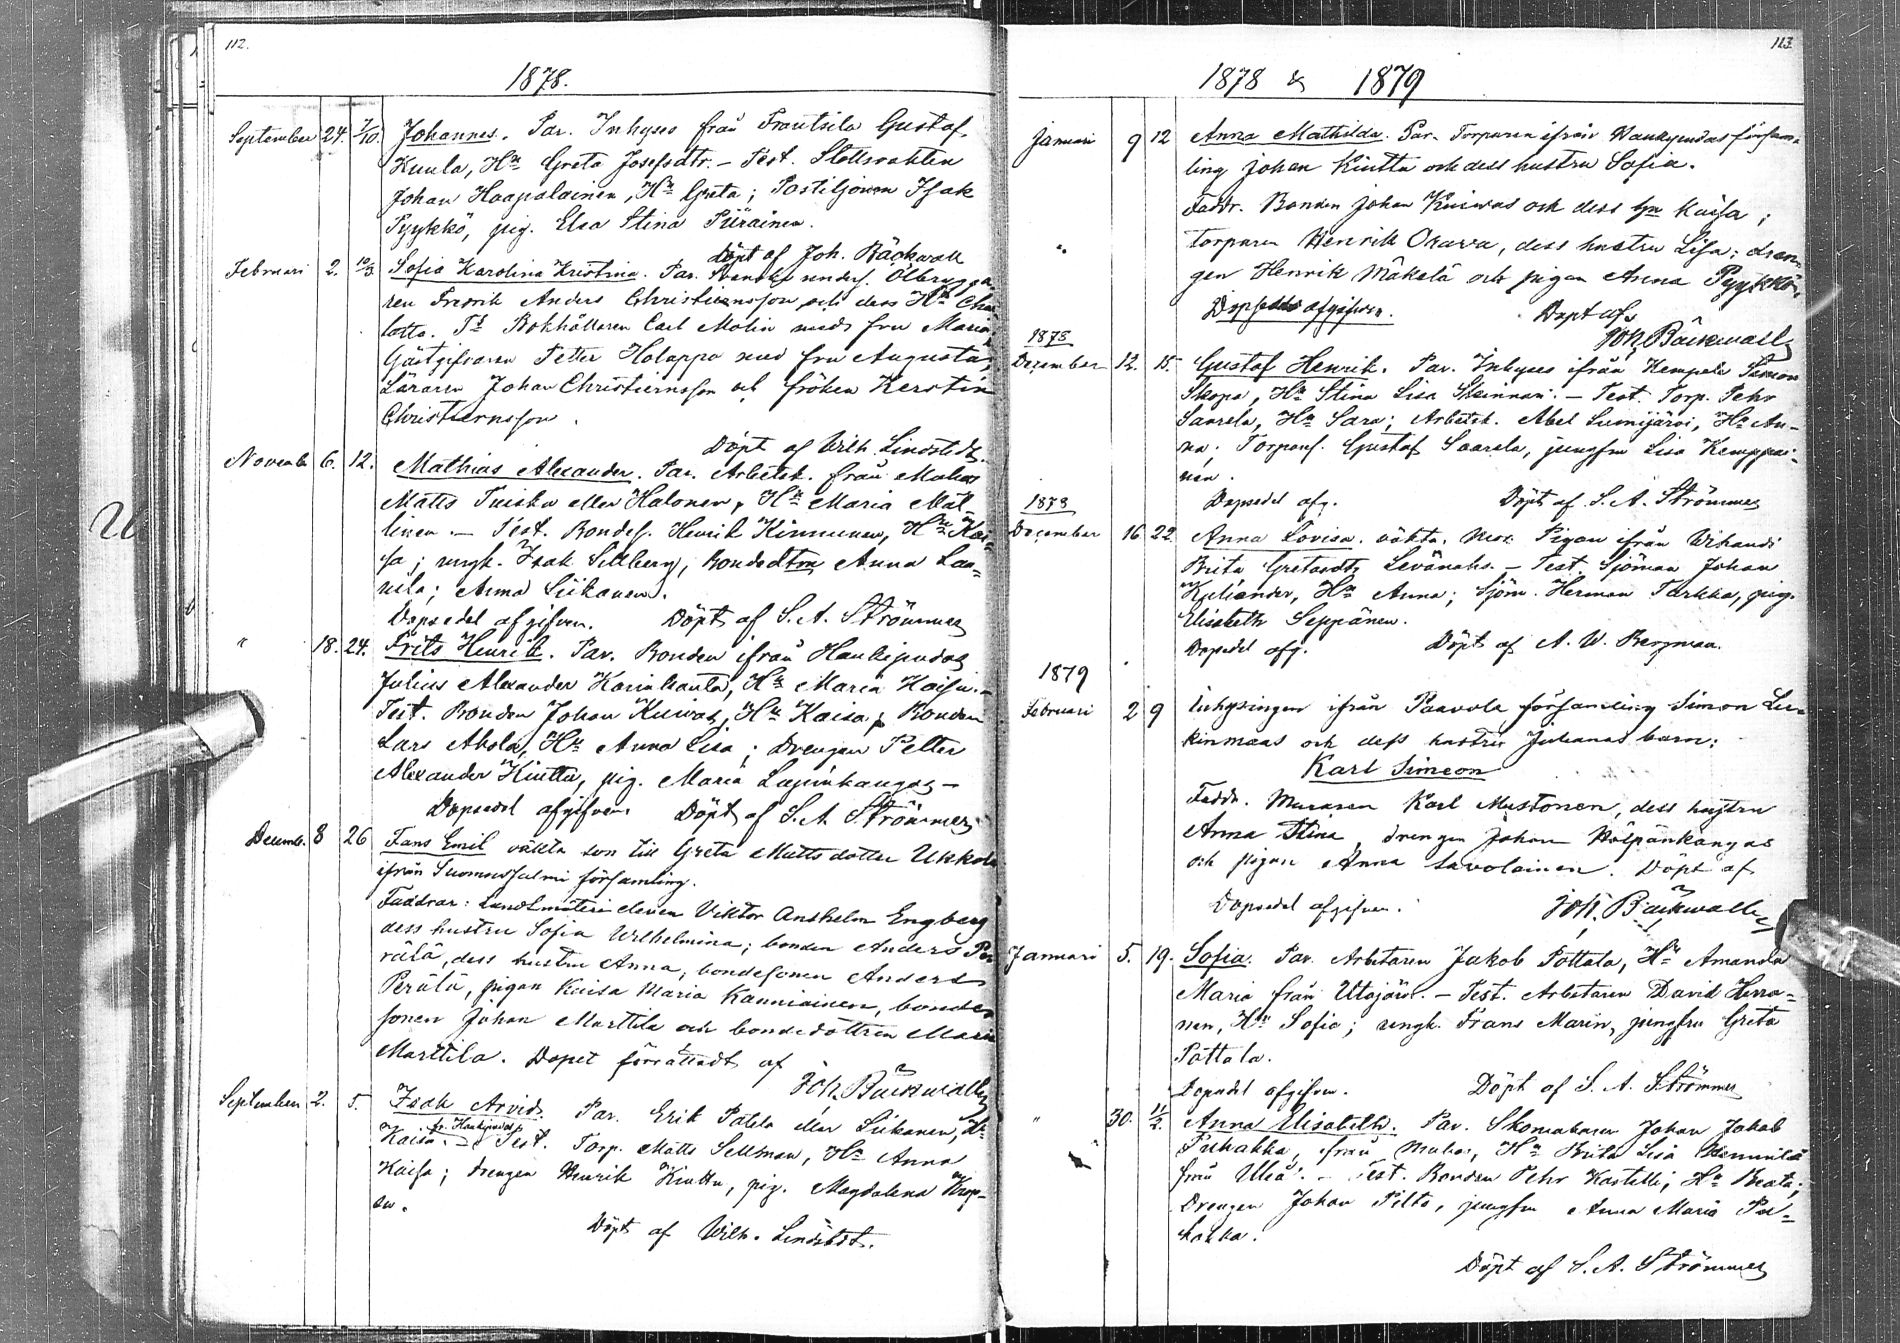 112.
1878.
September 24. 7/10. Johannes. Par. Inhyses från Frantsila Gustaf
Kuula, Hu Greta Josefsdtr. – Test. Slottsvakten
Johan Haapalainen, Hu Greta; Postiljonen Isak
Pyykkö, pig. Elsa Stina Piirainen.
Döpt af Joh. Bäckwall
Februari 2. 10/3. Sofia Karolina Kristina. Par. Svenske unders. Ölbrygga-
ren Fredrik Anders Christiernsson och dess Hu Char
lotta. Tt Bokhållaren Carl Molin med fru Maria
Gästgifvaren Petter Holappa med fru Augusta,
Läraren Johan Christiernsson och fröken Kerstin
Christiernsson.
Döpt af Wilh. Lindstedt.
Novemb. 6. 12. Mathias Alexander. Par. Arbetsk. från Muhos
Matts Tuiska eller Halonen, Hu Maria Mat-
linen – Test. Bondes. Henrik Kinnunen, Hu Kai-
sa; yngk. Isak Sillberg, Bondedtrn Anna Lau-
rila; Anna Siikanen.
Dopsedel afgifven. Döpt af S. A. Strömmer
" 18. 24. Frits Henrik. Par. Bonden ifrån Haukipudas
Julius Alexander Karinkanta, Hu Maria Kaisa. –
Test. Bonden Johan Kuivas, Hu Kaisa; Bonden
Lars Ahola, Hu Anna Lisa; Drengen Petter
Alexander Kiutta, pig. Maria Lapinkangas –
Dopsedel afgifven. Döpt af S. A. Strömmer
Decemb. 8 26 Frans Emil oäkta son till Greta Mattsdotter Ukkola
ifrån Suomussalmi församling.
Faddrar: Landtmäterieleven Viktor Anshelm Engberg
dess hustru Sofia Wilhelmina; bonden Anders Pe
rälä, dess hustru Anna; bondesonen Anders
Perälä, pigan Kaisa Maria Kauniainen, bonde
sonen Johan Marttila och bondedottren Maria
Marttila. Dopet förrättadt af
Joh. Bäckwall
September 2. 5. Isak Arvid. Par. Erik Pätela eller Siikanen, Hu
Kaisa fr. Haukipudas. – Test. Torp. Matts Sellman, Hu Anna
Kaisa; drengen Henrik Kiuttu, pig. Magdalena
Döpt af Wilh. Lindstedt.
113.
1878 & 1879
Januari 9 12 Anna Mathilda. Par. Torparen ifrån Haukipudas försam-
ling Johan Kiutta och dess hustru Sofia.
Faddr. Bonden Johan Kuivas och dess hu Kaisa;
" Torparen Henrik Okawa, dess hustru Lisa; dren-
gen Henrik Mäkelä och pigan Anna Pyykkö.
Dopsedel afgifven. Döpt af
Joh. Bäckwall
1878
December 12. 15. Gustaf Henrik. Par. Inhyses ifrån Kempele Simon
Skopa, Hu Stina Lisa Skinnari. – Test. Torp. Pehr
Saarela, Hu Sara; Arbetsk. Abel Lumijärvi, Hu An-
na; Torpars. Gustaf Saarela, jungfru Lisa Kemppai-
nen.
Dopsedel afg. Döpt af S. A. Strömmer
1878
December 16 22. Anna Lovisa. oäkta. Mor. Pigan ifrån Wihanti
Brita Gretasdtr Levänaho. – Test. Sjöman Johan
Kyliander, Hu Anna; Sjöm. Herman Tarkka, pig.
Elisabeth Seppänen.
Dopsedel afg. Döpt af A. W. Bergman.
1879
Februari 2 9 Inhysingen ifrån Paavola församling Simon Les-
kinmaas och dess hustru Julianas barn:
Karl Simeon
Faddr. Muraren Karl Mustonen, dess hustru
Anna Stina, drengen Johan Hölpänkangas
och pigan Anna Savolainen. Döpt af
Dopsedel afgifven. Joh. Bäckwall
Januari 5. 19. Sofia. Par. Arbetaren Jakob Pottala, Hu Amanda
Maria från Utajärvi. – Test. Arbetaren David Herra-
nen, Hu Sofia; yngk. Frans Marin, jungfru Greta
Pottala.
Dopsedel afgifven. Döpt af S. A. Strömmer
" 30. 11/2. Anna Elisabeth. Par. Skomakaren Johan Jakob
Puhakka, från Muhos, Hu Brita Lisa Hemmilä
från Uleå. – Test. Bonden Pehr Kastelli, Hu Beata;
Drengen Johan Pilto, jungfru Anna Maria Pu-
hakka.
Döpt af S. A. Strömmer